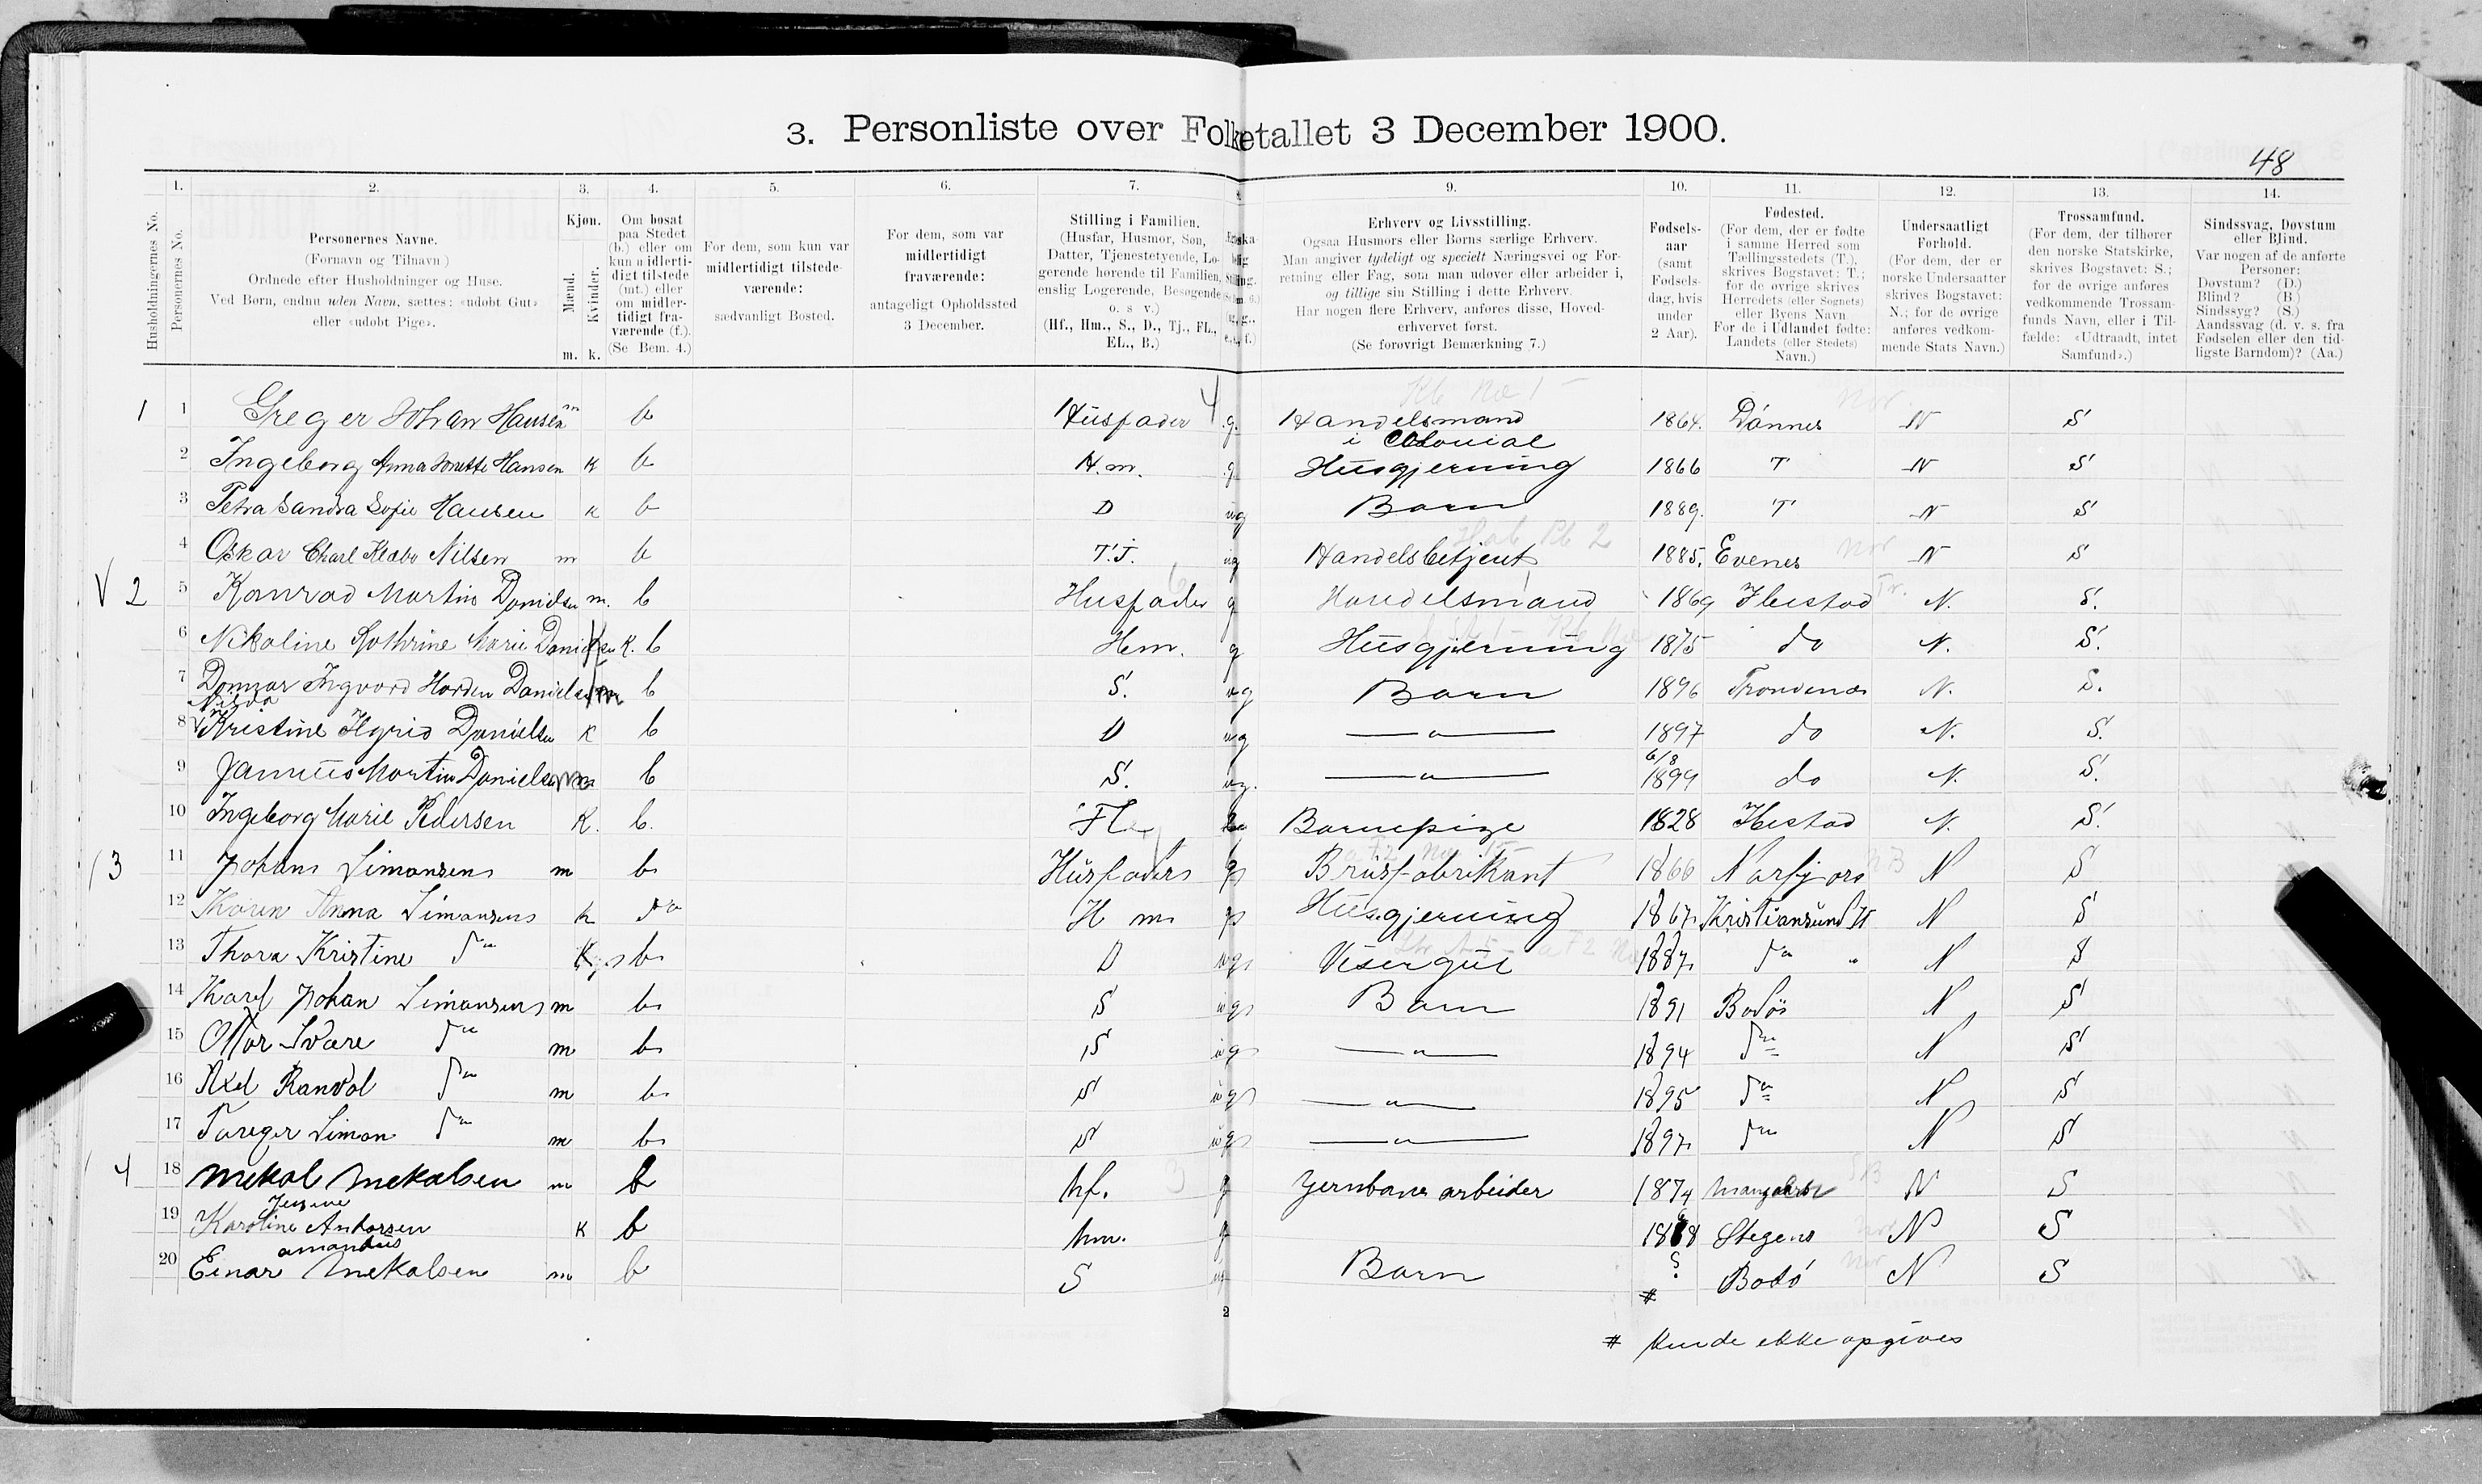 3. Personliste over Folketallet 3 December 1900.
48
1. 2. 3. 4. 5. 6. 7. 9. 10. 11. 12. 13. 14.
Husholdningernes No.
Personernes No.
Personernes Navne.
(Fornavn og Tilnavn)
Ordnede efter Husholdninger og Huse.
Ved Børn, endnu uden Navn, sættes: «udøbt Gut»
eller «udøbt Pige».
Kjøn.
Mænd.
Kvinder.
m. k.
Om bosat
paa Stedet
(b.) eller om
kun midlerti-
digt tilstede
(mt.) eller
om midler-
tidigt fra-
værende (f.).
(Se Bem. 4.)
For dem, som kun var
midlertidigt tilstede-
værende:
sædvanligt Bosted.
For dem, som var
midlertidigt
fraværende:
antageligt Opholdssted
3 December.
Stilling i Familien.
(Husfar, Husmor, Søn,
Datter, Tjenestetyende, Lo-
gerende hørende til Familien,
enslig Logerende, Besøgende
o. s v.)
(Hf., Hm., S., D., Tj., FL.,
EL., B.)
Erhverv og Livsstilling.
Ogsaa Husmors eller Børns særlige Erhverv.
Man angiver tydeligt og specielt Næringsvei og For-
retning eller Fag, som man udøver eller arbeider i,
og tillige sin Stilling i dette Erhverv.
Har nogen flere Erhverv, anføres disse, Hoved-
erhvervet først.
(Se forøvrigt Bemærkning 7.)
Fødsels-
aar
(samt
Fødsels-
dag, hvis
under
2 Aar).
Fødested.
(For dem, der er fødte
i samme Herred som
Tællingsstedets (T.),
skrives Bogstavet: T.;
for de øvrige skrives
Herredets (eller Sognets)
eller Byens Navn
For de i Udlandet fødte:
Landets (eller Stedets)
Navn.)
Undersaatligt
Forhold.
(For dem, der er
norske Undersaatter
skrives Bogstavet:
N.; for de øvrige
anføres vedkom-
mende Stats Navn.)
Trossamfund.
(For dem, der tilhører
den norske Statskirke,
skrives Bogstavet: S.;
for de øvrige anføres
vedkommende Trossam-
funds Navn, eller i Til-
fælde: «Udtraadt, intet
Samfund».)
Sindssvag, Døvstum
eller Blind.
Var nogen af de anførte
Personer:
Døvstum? (D.)
Blind? (B.)
Sindssyg? (S.)
Aandssvag (d. v. s. fra
Fødselen eller den tid-
ligste Barndom)? (Aa.)
1 1 Greger Johan Hansen m b Husfader 4 g. Handelsmand 1864. Dønnes N S
i Colonial
2 Ingeborg Anna Jonette Hansen k b H.m. g Husgjerning 1866 T N S
3 Petra Sandra Sofie Hansen k b D ug Barn 1889. T N S
4 Oskar Charl Klæbo Nilsen m b T.J. ug Handelsbetjent 1885. Evenes N S
V 2 5 Konrad Martin Danielsen m. b Husfader g Handelsmand 1869 Ibestad N. S.
6 Nikoline Kathrine Marie Danielsen K. b Hm. g Husgjerning 1875 do N. S.
7 Ingvard Danielsen m b S. ug Barn 1896 Trondenæs N. S.
8 Kristine Danielsen K b D ug — " — 1897 do N. S.
6/8
9 Martin Danielsen m b S. ug. — " — 1899 do N. S.
10 Ingeborg Marie Pedersen K. b. Fl Barnepige 1828 Ibestad N. S.
3 11 Johan Simonsen m b Husfader g Brusfabrikant 1860 N S
12 Karen Anna Simonsen k do H m g Husgjerning 1867 Kristiansund N N S
13 Thora Kristine do K b D ug Visergut 1887 do " N S
14 Karl Johan Simonsen m b S ug Barn 1891 Bodø N S
15 Ottar Svare do m b S ug — " — 1894 do N S
16 Axel Randol do m b S ug — " — 1895 do N S
17 Simon do m b S ug — " — 1897 do N S
4 18 Mekal Mekalsen m b hf. 3 g Jernbanearbeider 1874 N S
19 Karoline Andorsen k b hm. g Stegens N S
amandus
20 Einar Mekalsen m b S ug Barn # Bodø N S
2
# kunde ikke opgives